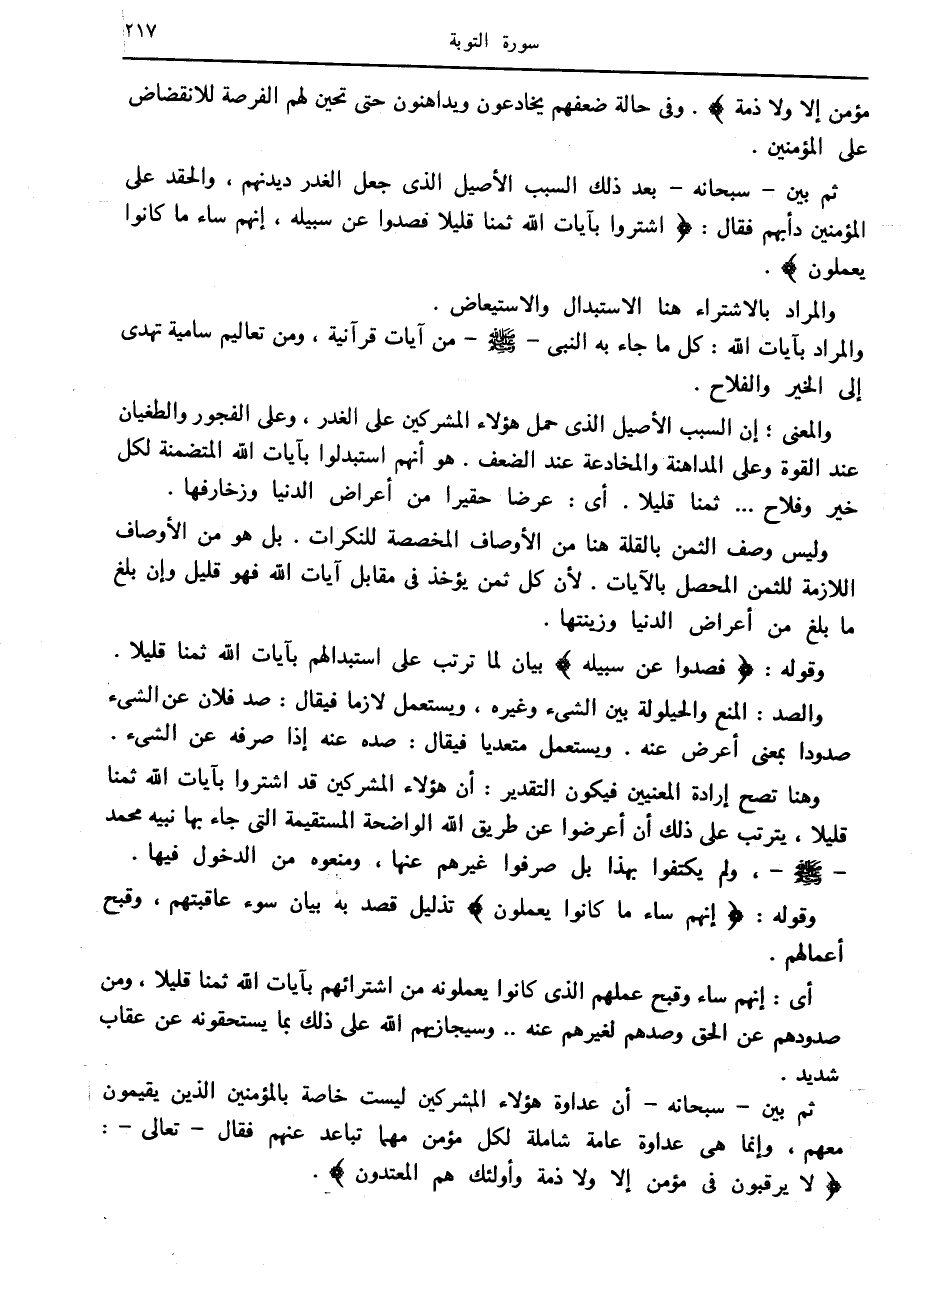 سورة التوبة ٢١٧
مؤمن إلا ولا ذمة ﴾ . وفى حالة ضعفهم يخادعون ويداهنون حتى تحين لهم الفرصة للانقضاض
على المؤمنين .
ثم بين – سبحانه – بعد ذلك السبب الأصيل الذى جعل الغدر ديدنهم ، والحقد على
المؤمنين دأبهم فقال : ﴿ اشتروا بآيات الله ثمنا قليلا فصدوا عن سبيله ، إنهم ساء ما كانوا
يعملون ﴾ .
والمراد بالاشتراء هنا الاستبدال والاستيعاض .
والمراد بآيات الله : كل ما جاء به النبى – ﷺ – من آيات قرآنية ، ومن تعاليم سامية تهدى
إلى الخير والفلاح .
والمعنى ؛ إن السبب الأصيل الذى حمل هؤلاء المشركين على الغدر ، وعلى الفجور والطغيان
عند القوة وعلى المداهنة والمخادعة عند الضعف . هو أنهم استبدلوا بآيات الله المتضمنة لكل
خير وفلاح ... ثمنا قليلا . أى : عرضا حقيرا من أعراض الدنيا وزخارفها .
وليس وصف الثمن بالقلة هنا من الأوصاف المخصصة للنكرات . بل هو من الأوصاف
اللازمة للثمن المحصل بالآيات . لأن كل ثمن يؤخذ فى مقابل آيات الله فهو قليل وإن بلغ
ما بلغ من أعراض الدنيا وزينتها .
وقوله : ﴿ فصدوا عن سبيله ﴾ بيان لما ترتب على استبدالهم بآيات الله ثمنا قليلا .
والصد : المنع والحيلولة بين الشىء وغيره ، ويستعمل لازما فيقال : صد فلان عن الشىء
صدودا بمعنى أعرض عنه . ويستعمل متعديا فيقال : صده عنه إذا صرفه عن الشىء .
وهنا تصح إرادة المعنيين فيكون التقدير : أن هؤلاء المشركين قد اشتروا بآيات الله ثمنا
قليلا ، يترتب على ذلك أن أعرضوا عن طريق الله الواضحة المستقيمة التى جاء بها نبيه محمد
– ﷺ – ، ولم يكتفوا بهذا بل صرفوا غيرهم عنها ، ومنعوه من الدخول فيها .
وقوله : ﴿ إنهم ساء ما كانوا يعملون ﴾ تذليل قصد به بيان سوء عاقبتهم ، وقبح
أعمالهم .
أى : إنهم ساء وقبح عملهم الذى كانوا يعملونه من اشترائهم بآيات الله ثمنا قليلا ، ومن
صدودهم عن الحق وصدهم لغيرهم عنه .. وسيجازيهم الله على ذلك بما يستحقونه عن عقاب
شديد .
ثم بين – سبحانه – أن عداوة هؤلاء المشركين ليست خاصة بالمؤمنين الذين يقيمون
معهم ، وإنما هى عداوة عامة شاملة لكل مؤمن مهما تباعد عنهم فقال – تعالى – :
﴿ لا يرقبون فى مؤمن إلا ولا ذمة وأولئك هم المعتدون ﴾ .